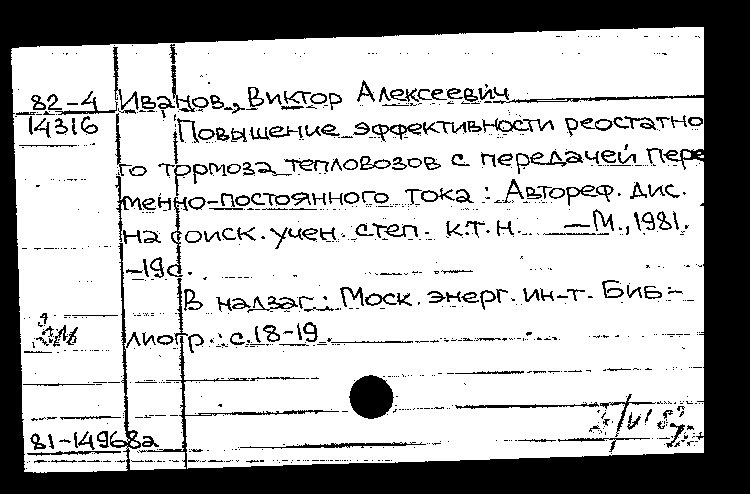 82-4 Иванов, Виктор Алексеевич
14316 Повышение эффективности реостатно
го тормоза тепловозов с передачей пере
менно-постоянного тока : Автореф. дис.
на соиск. учен. степ. к.т.н. —М., 1981.
-19с.
В надзаг.: Моск. энерг. ин-т. Биб-
лиогр.: с.18-19.
81-14968а